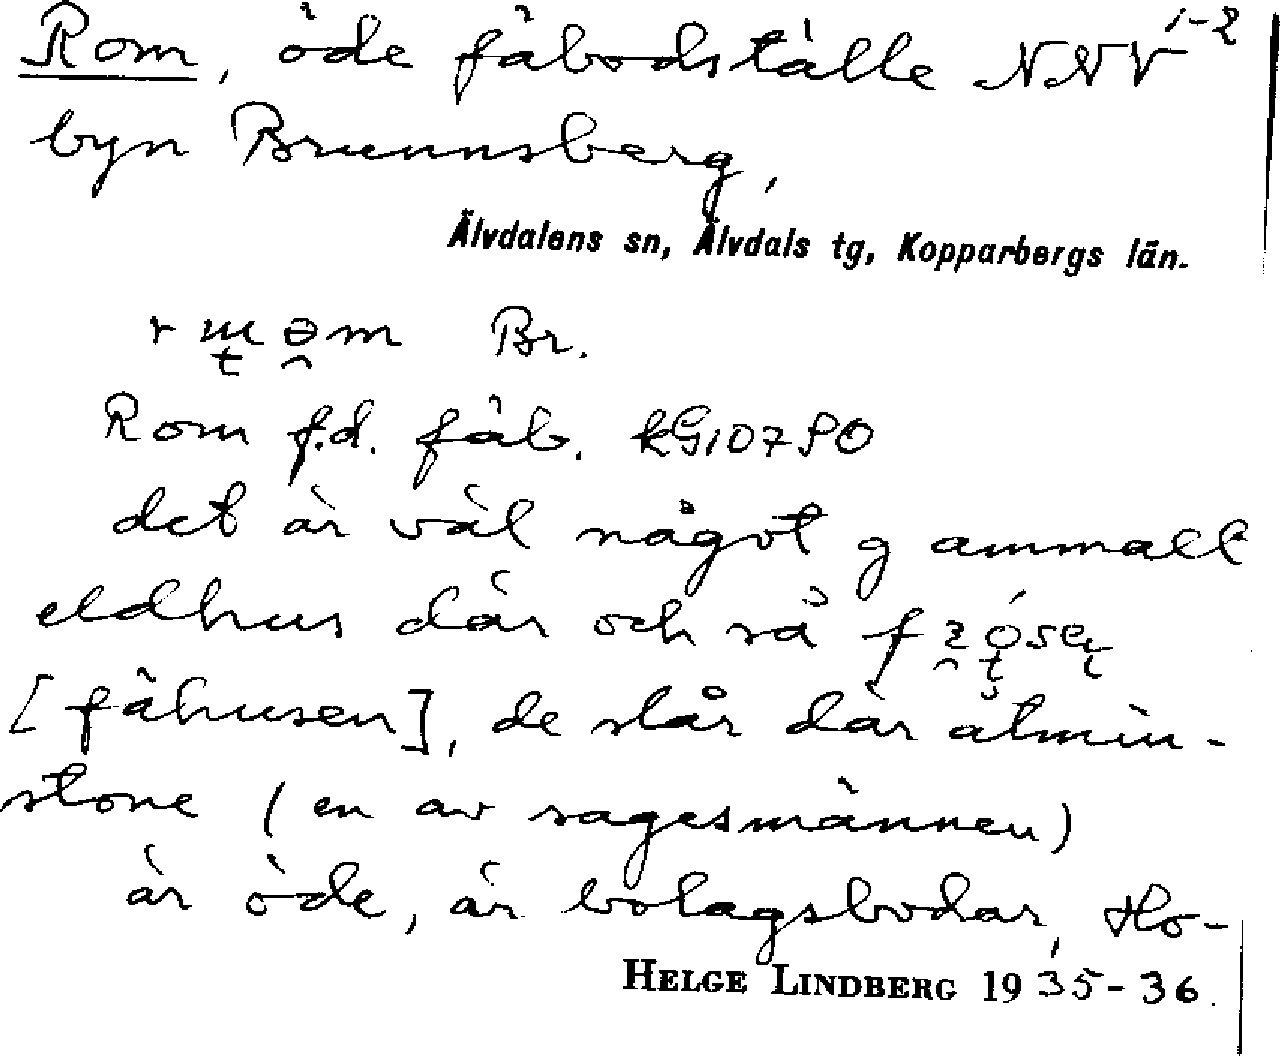 Rom, öde fäbodställe NNV 1-2
byn Brunnsberg,
Älvdalens sn, Älvdals tg, Kopparbergs län.
Br.
Rom f.d. fäb. kG10790
det är väl något gammalt
eldhus där och så
[fähusen], de står där åtmin-
stone (en av sagesmännen)
är öde, är bolagsbodar, Ho-
HELGE LINDBERG 1935-36.